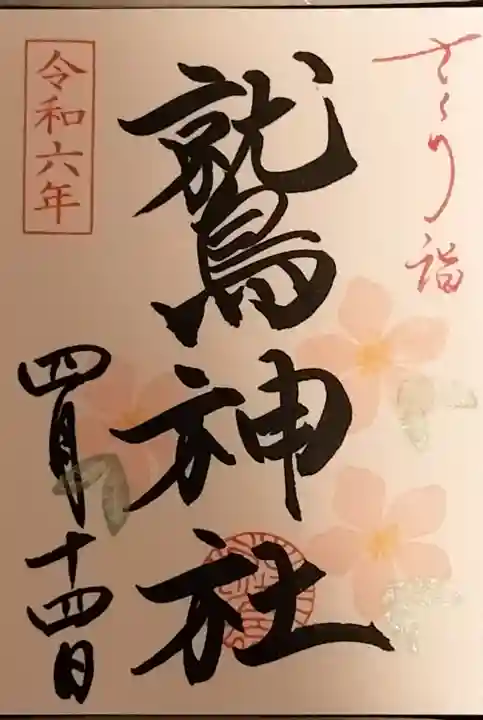 さくら詣
鷲神社
令和六年
四月十四日